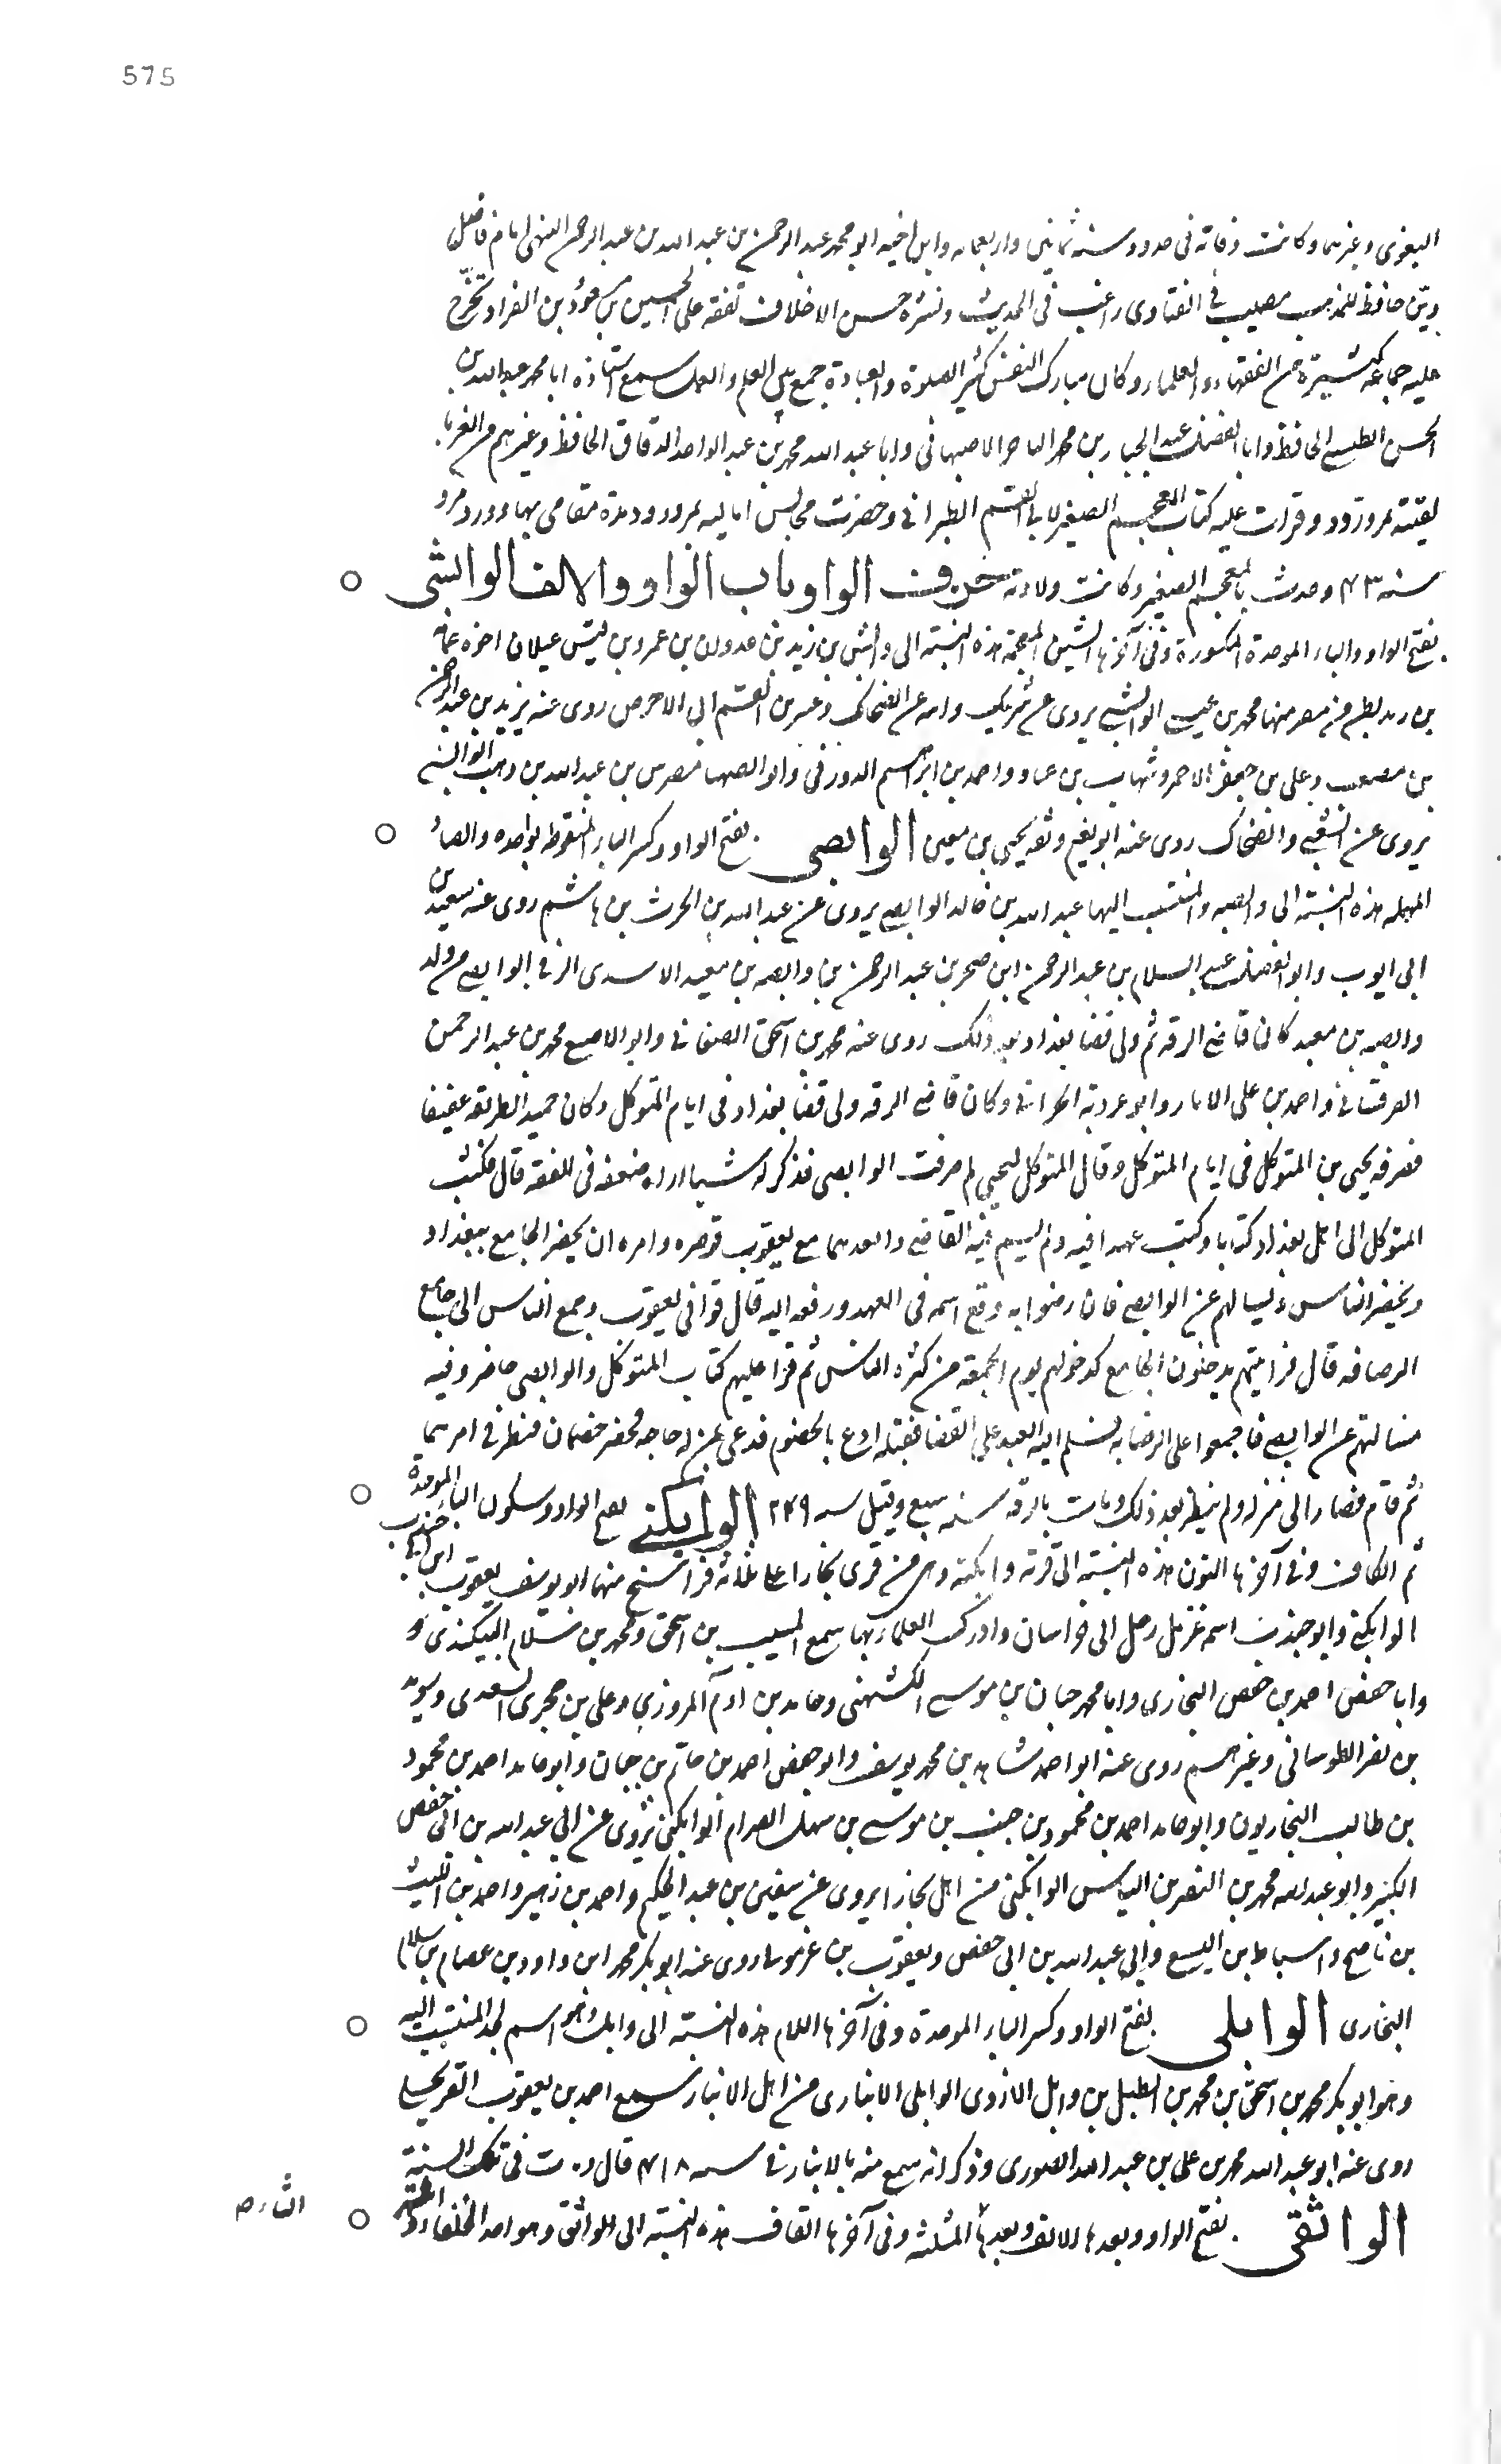 575
البغوى وغيرهما وكانت وفاته فى حدود سنه ثمانين واربعمايه وابن اخيه ابو محمد عبد الرحمن بن عبد الله بن عبد الرحمن النيهى امام فاضل
ديّن حافظ للمذهب مصيب فى الفتاوى راغب فى الحديث ونشره حسن الاخلاق تفقه على الحسين بن مسعود بن الفراء وتخرّج
عليه جماعة كثيرة من الفقهاء والعلماء وكان مبارك النفس كثير الصلوة والعبادة جمع بين العلم والعمل سمع استاذه ابا محمد عبد الله بن
الحسن الطبسى الحافظ وابا الفضل عبد الجبار بن محمد الاصبهانى وابا عبد الله محمد بن عبد الواحد الدقاق الحافظ وغيرهم من الغربا
لقيته بمروروذ وقرات عليه كتاب المعجم الصغير لابى القسم الطبرانى وحضرت مجالس اماليه بمروروذ مدة مقامى بها وورد مرو
سنه ٤٣ وحدث بالمعجم الصغير وكانت ولادته حرف الواو باب الواو والالف الوابشى
بفتح الواو والباء الموحدة المكسورة وفى آخرها الشين المعجمة هذه النسبة الى وابش بن زيد بن عدوان بن عمرو بن قيس عيلان اخوه
بن زيد بطن من مضر منها محمد بن عيسى الوابشى يروى عن شريك وابيه عن الضحاك روى عنه يزيد بن عبد الرحمن
بن مصعب وعلى بن جعفر الاحمر وشهاب بن عباد واحمد بن ابراهيم الدورقى وابو الصهبا بن عبد الله بن وهب الوابشى
يروى عن الشعبى والضحاك روى عنه ابو نعيم وثقه يحيى بن معين الوابصى بفتح الواو وكسر الباء المنقوطة بواحدة والصاد
المهملة هذه النسبة الى وابصه والمنتسب اليها عبد الله بن خالد الوابصى يروى عن عبد الله بن الحرث بن هاشم روى عنه سعيد بن
ابى ايوب وابو الفضل عبد السلام بن عبد الرحمن ابن صخر بن عبد الرحمن بن وابصه بن معبد الاسدى الرقى الوابصى من ولد
وابصه بن معبد كان قاضى الرقه ثم ولى قضا بغداد بعد ذلك روى عنه محمد بن اسحق الصغانى وابو الاصبغ محمد بن عبد الرحمن
القرقسانى واحمد بن على الابار وابو عروبة الحرانى وكان قاضى الرقه ولى قضا بغداد فى ايام المتوكل وكان حميد الطريقه عفيفا
فصرفه يحيى بن المتوكل فى ايام المتوكل وقال المتوكل ليحيى لم صرفت الوابصى فذكر له شيا اراد به ضعفه فى الفقه قال فكتب
المتوكل الى اهل بغداد كتابا وكتب عهدا فيه ولم يسم فيه القاضى وانفذهما مع يعقوب قوصره وامره ان يحضر الجامع ببغداد
ويحضر الناس ويسالهم عن الوابصى فان رضوا به وقع اسمه فى العهد ورفعه اليه قال فوافى يعقوب وجمع الناس الى جامع
الرصافه قال فرايتهم يدخلون الجامع كدخولهم يوم الجمعة من كثرة الناس ثم قرا عليهم كتاب المتوكل والوابصى حاضر وفيه
مسالتهم عن الوابصى فاجمعوا على الرضا به فسلم اليه العهد على القضا فقبله ادع بالخصوم فدعى بمن له حاجه فحضر خصمان فنظر فى امرهما
ثم قام فصار الى منزله ولم ينظر بعد ذلك ومات بالرقه سنه سبع وقيل سنه ٢٤٩ الوابكنى بفتح الواو وسكون الباء الموحدة
ثم الكاف وفى آخرها النون هذه النسبة الى قرية وابكنه وهى من قرى بخارا على ثلاثة فراسخ منها ابو يوسف يعقوب بن ابى جندب
الوابكنى وابو جندب اسمه رحل الى خراسان وادرك العلماء بها سمع المسيب بن اسحق ومحمد بن سلام البيكندى و
وابا حفص احمد بن حفص البخارى وابا محمد حبان بن موسى الكشميهنى وحامد بن آدم المروزى وعلى بن حجر السعدى وسويد
بن نصر الطوسانى وغيرهم روى عنه ابو احمد شاهد بن محمد بن يوسف وابو حفص احمد بن حاتم بن حيان وابو حامد احمد بن محمود
بن طالب البخاريون وابو حامد احمد بن محمود بن جنب بن موسى بن سهل الصرام الوابكنى يروى عن ابى عبد الله بن ابى حفص
الكبير وابو عبد الله محمد بن النضر بن الياس الوابكنى من اهل بخارا يروى عن سفين بن عبد الحكيم واحمد بن زهير واحمد بن الليث
بن ناصح واسباط بن اليسع وابى عبد الله بن ابى حفص ويعقوب بن روى عنه ابو بكر محمد ابن داود بن عصام بن سلام
البخارى الوابلى بفتح الواو وكسر الباء الموحدة وفى آخرها اللام هذه النسبة الى وابل وهو اسم لجد المنتسب اليه
وهو ابو بكر محمد بن اسحق بن محمد بن الطبل بن وابل الازدى الوابلى الانبارى من اهل الانبار سمع احمد بن يعقوب القرنجلى
روى عنه ابو عبد الله محمد بن على بن عبد الله الصورى وذكر انه سمع منه بالانبار فى سنه ٤١٨ قال ومات فى تلك السنة
الواثقى بفتح الواو وبعدها الالف وبعدها المثلثه وفى آخرها القاف هذه النسبة الى الواثق وهو احد الخلفاء
الثاء صح